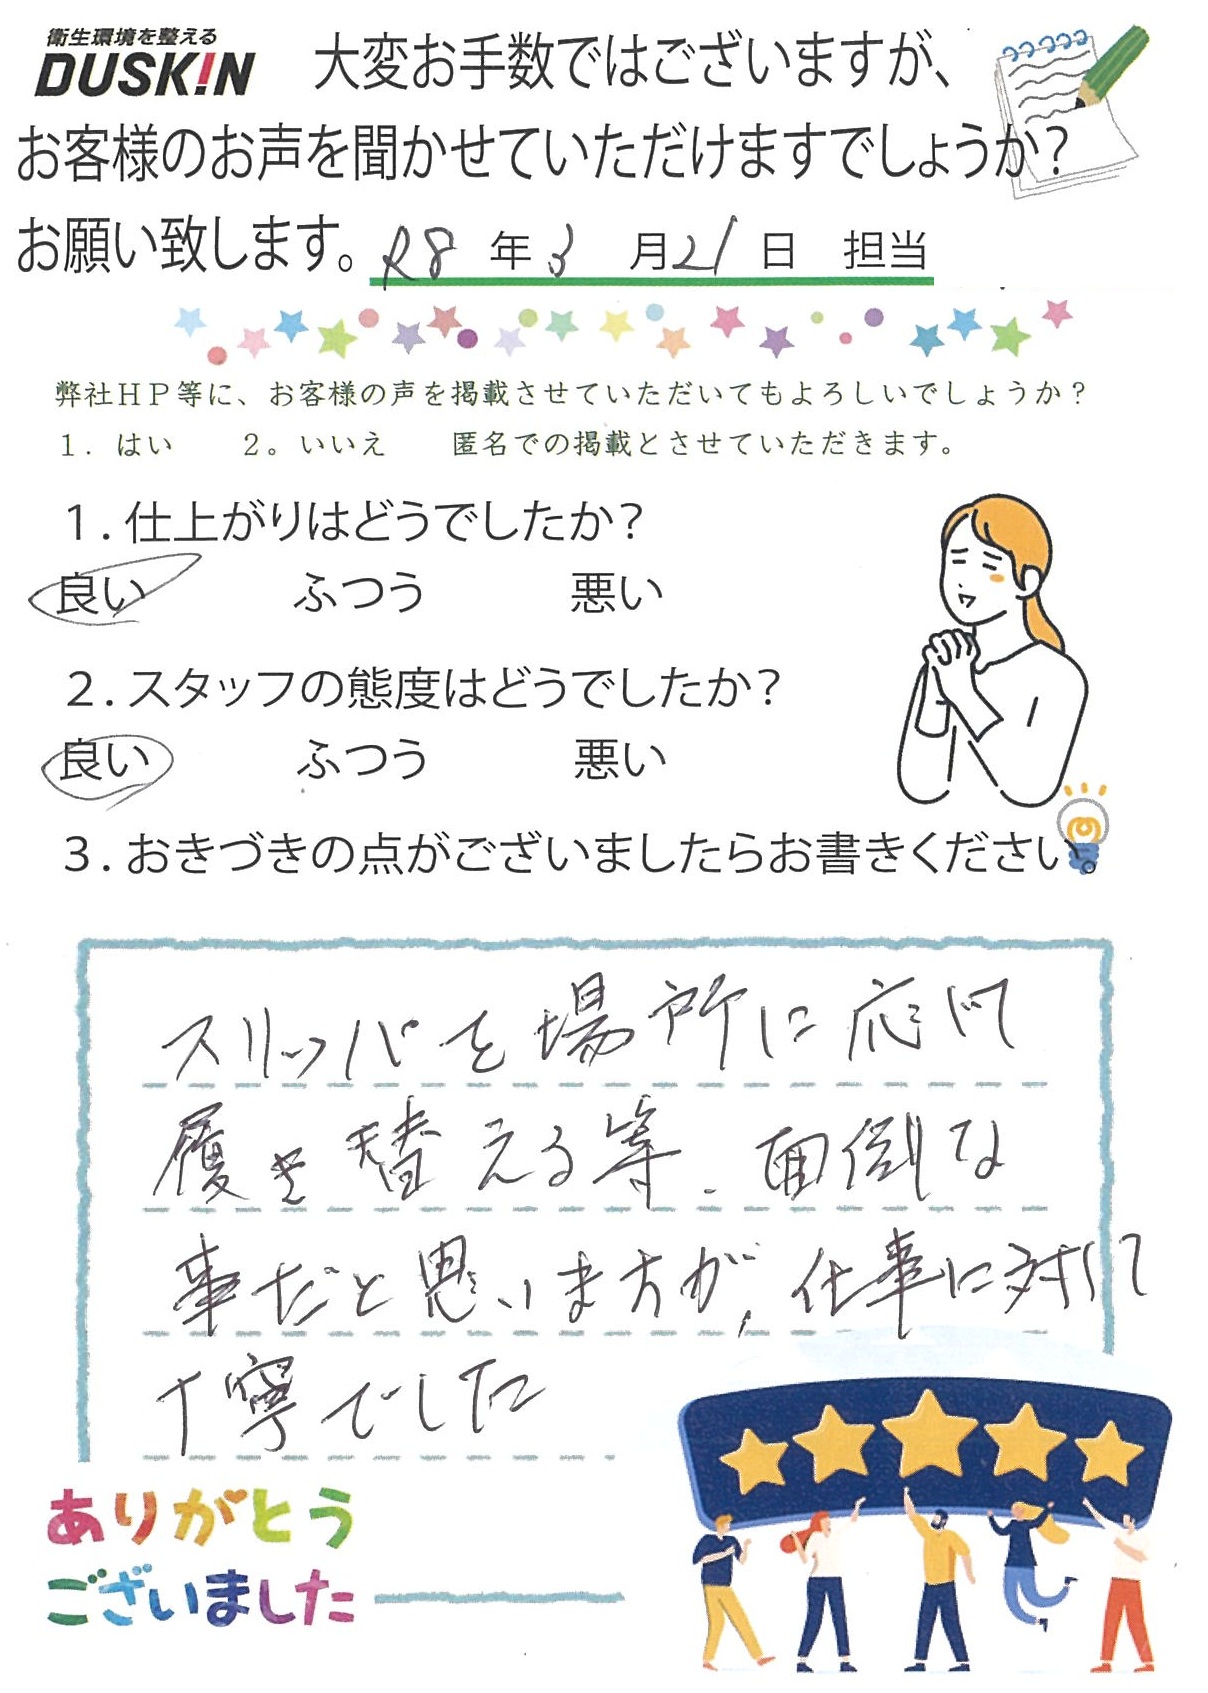 衛生環境を整える
DUSKIN
大変お手数ではございますが、
お客様のお声を聞かせていただけますでしょうか?
お願い致します。R8年3月21日 担当
弊社HP等に、お客様の声を掲載させていただいてもよろしいでしょうか?
1. はい 2。いいえ 匿名での掲載とさせていただきます。
1.仕上がりはどうでしたか?
良い ふつう 悪い
2.スタッフの態度はどうでしたか?
良い ふつう 悪い
3.おきづきの点がございましたらお書きください。
スリッパを場所に応じて
履き替える等、面倒な
事だと思いますが、仕事に対して
丁寧でした
ありがとう
ございました